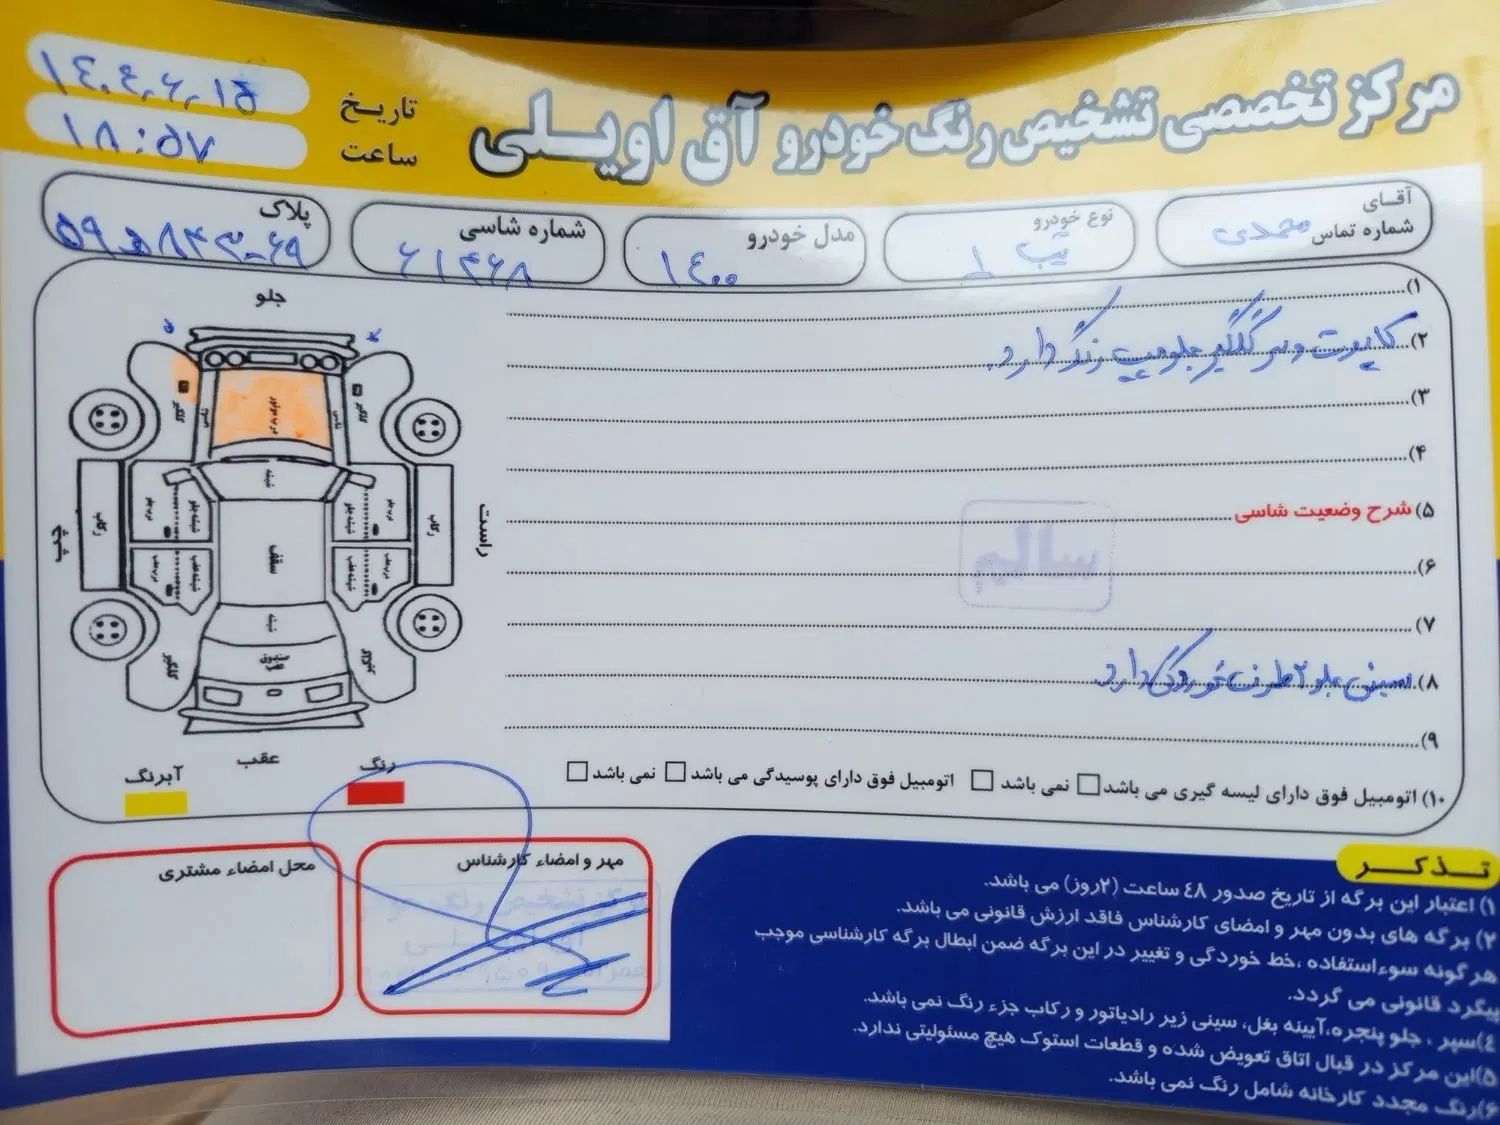 مرکز تخصصی تشخیص رنگ خودرو آق اویلی
تاریخ ۱۴۰۴،۶،۱۵
ساعت ۱۸:۵۷
آقای محمدی
شماره تماس
نوع خودرو تیپ ۱
مدل خودرو ۱۴۰۰
شماره شاسی ۶۱۴۶۸
پلاک
جلو
راست
عقب
گلگیر
گلگیر
درب موتور
شاسی
شیشه
رکاب
درب جلو
شیشه جلو
شیشه جلو
درب جلو
رکاب
سقف
درب عقب
شیشه عقب
شیشه عقب
درب عقب
شیشه
گلگیر
صندوق
آبرنگ
رنگ
۱)
۲) کاپوت و سر گلگیر جلو چپ رنگ دارد.
۳)
۴)
۵) شرح وضعیت شاسی
سالم
۶)
۷)
۸) سینی جلو ۲ طرف خوردگی دارد.
۹)
۱۰) اتومبیل فوق دارای لیسه گیری می باشد نمی باشد اتومبیل فوق دارای پوسیدگی می باشد نمی باشد
مهر و امضاء کارشناس
مرکز تشخیص رنگ خودرو
محل امضاء مشتری
تذکر
۱) اعتبار این برگه از تاریخ صدور ٤٨ ساعت (۲روز) می باشد.
۲) برگه های بدون مهر و امضای کارشناس فاقد ارزش قانونی می باشد.
هرگونه سوءاستفاده ،خط خوردگی و تغییر در این برگه ضمن ابطال برگه کارشناسی موجب
پیگرد قانونی می گردد.
٤)سپر ، جلو پنجره،آیینه بغل، سینی زیر رادیاتور و رکاب جزء رنگ نمی باشد.
۵)این مرکز در قبال اتاق تعویض شده و قطعات استوک هیچ مسئولیتی ندارد.
۶)رنگ مجدد کارخانه شامل رنگ نمی باشد.